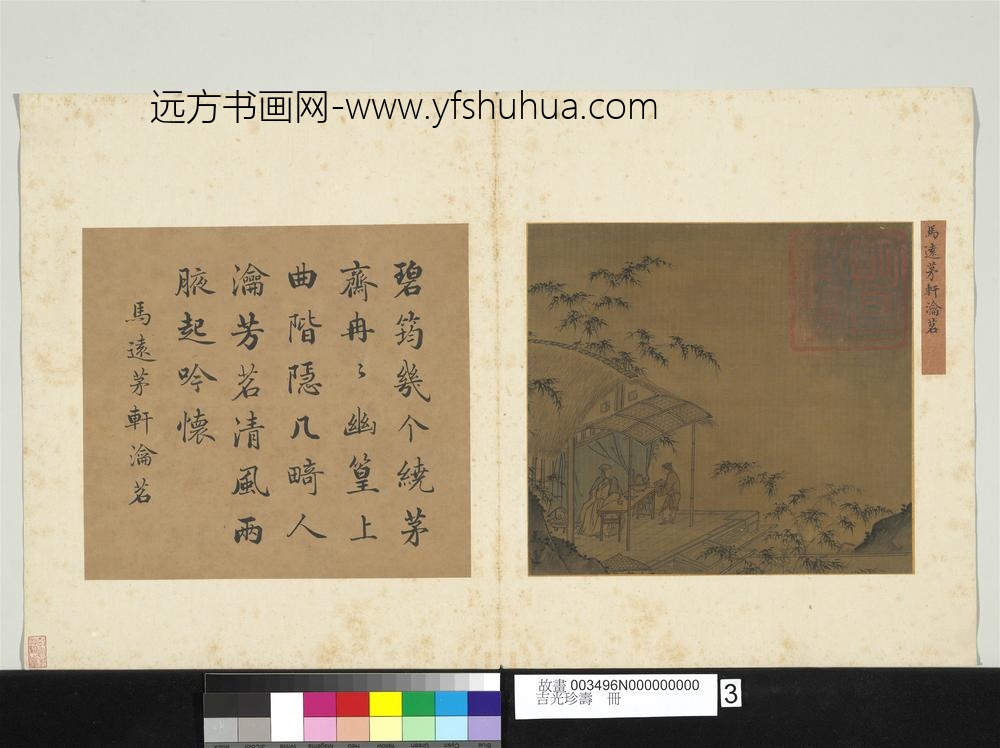 远方书画网-www.yfshuhua.com
馬遠茅軒瀹茗
碧筠幾个繞茅
齋冉〻幽篁上
曲階隱几畸人
瀹芳茗清風兩
腋起吟懷
馬遠茅軒瀹茗
故畫 003496N000000000
吉光珍壽 冊
3